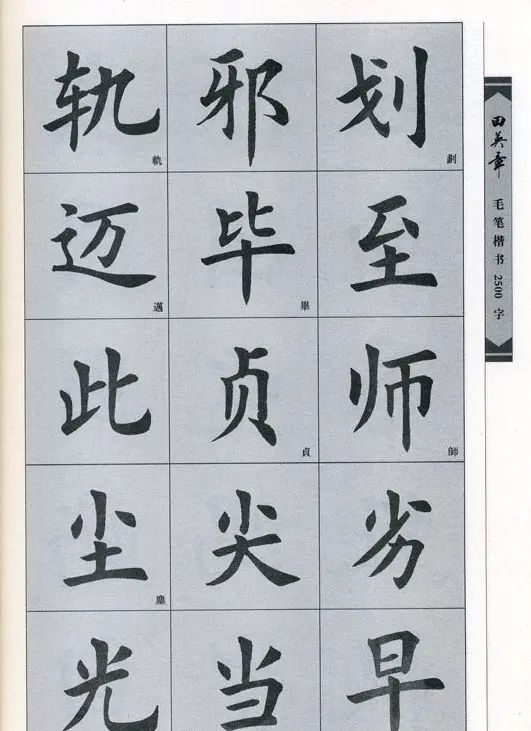 轨 邪 划
軌 劃
迈 毕 至
邁 畢
此 贞 师
貞 師
尘 尖 劣
塵
光 当 早
田英章
毛笔楷书2500字